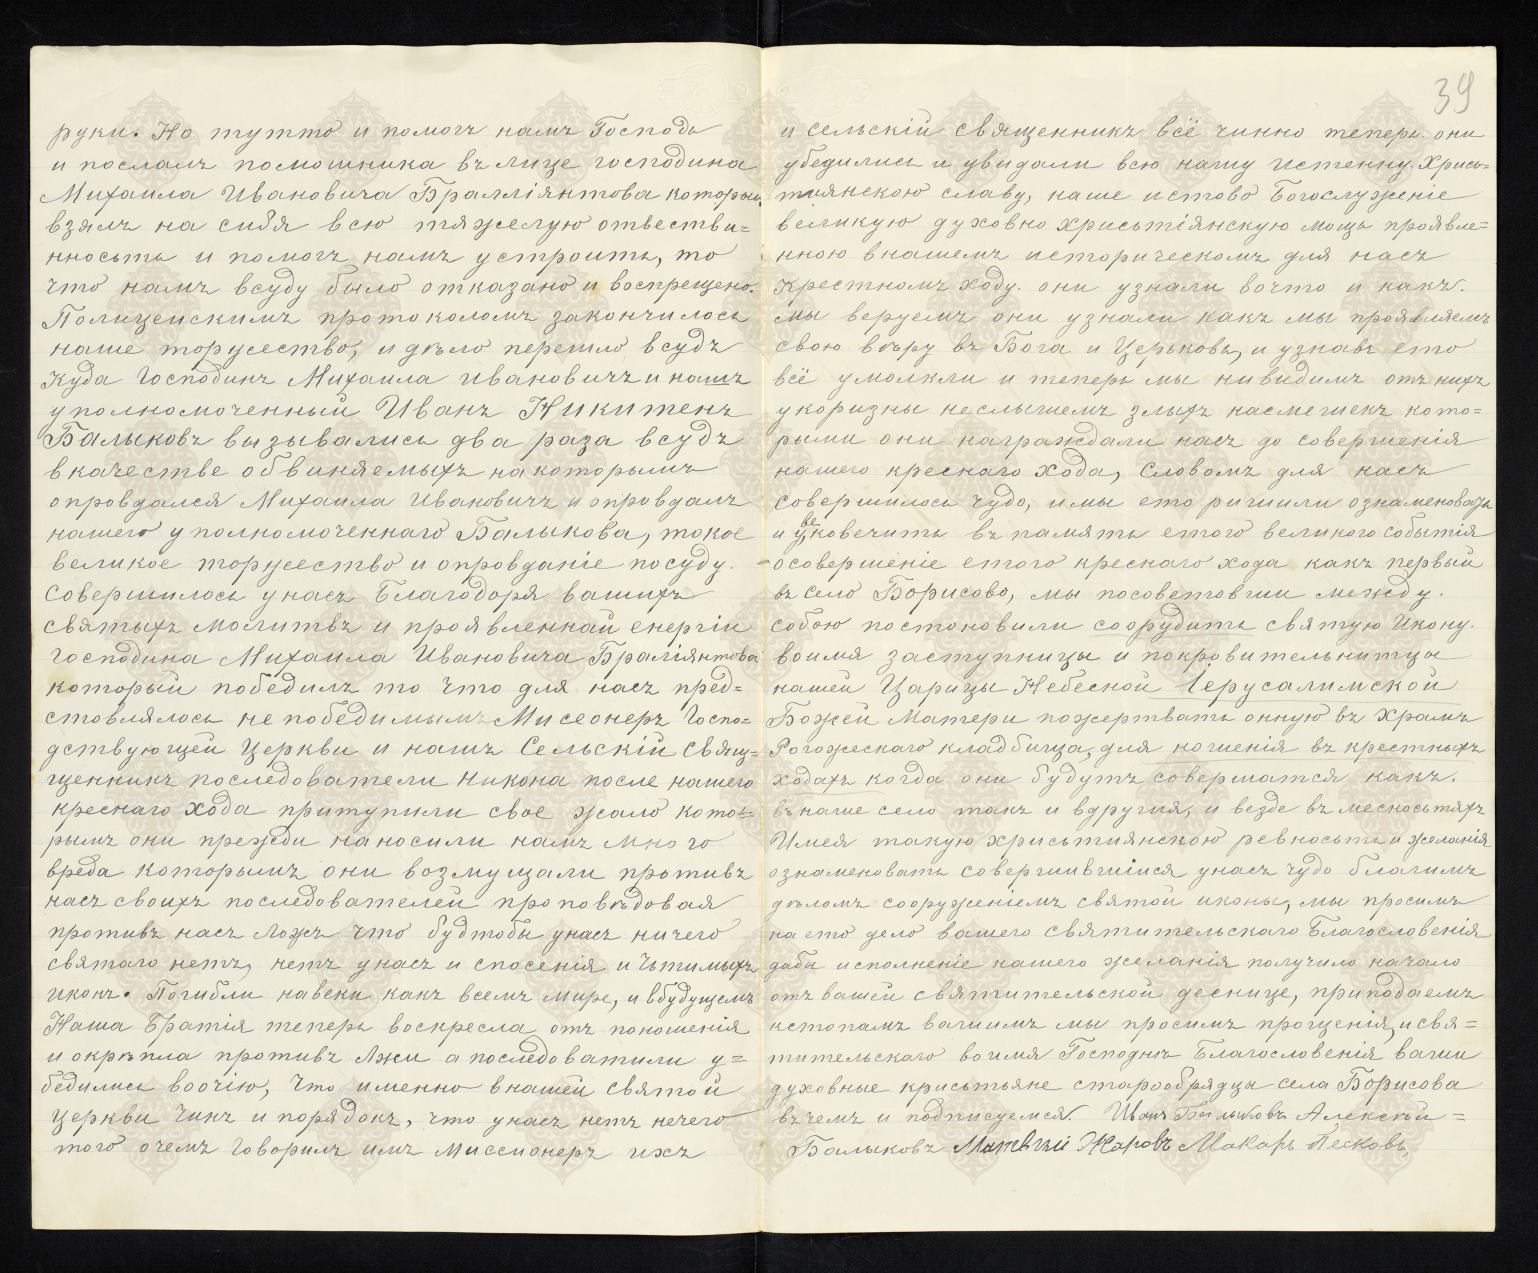 39
руки. Но тутто и помогъ намъ Господь
и послалъ помошника въ лице господина
Михаила Ивановича Бралліянтова который
взялъ на сибя всю тяжелую отвестви=
нность и помогъ намъ устроить, то
что намъ всуду было отказано и воспрещено.
Полицейскимъ протоколомъ закончилось
наше торжество, и дѣло перешло всудъ
куда Господинъ Михаила Ивановичъ и нашъ
уполномоченный Иванъ Никитенъ
Балыковъ вызывались два раза всудъ
вкачестве обвиняемыхъ на которымъ
опровдался Михаила Ивановичъ и опровдалъ
нашего уполномоченнаго Балыкова, токое
великое торжество и опровданіе посуду.
совершилось унасъ Благодоря вашихъ
святыхъ молитвъ и проявленнай енергіи
господина Михаила Ивановича Браліянтова
который победилъ то что для насъ пред=
стовлялось не победимымъ Мисеонеръ Госпо=
дствующей Церкви и нашъ Сельскій свящ=
щенникъ последователи Никона после нашего
креснаго хода притупили свое жало кото=
рымъ они прежди наносили намъ много
вреда которымъ они возмущали противъ
насъ своихъ последователей проповѣдовая
противъ насъ ложъ что будтобы унасъ ничего
святаго нетъ, нетъ унасъ и спосенія и чьтимыхъ
иконъ. Погибли навеки какъ всемъ мире, и вбудущемъ
Наша Братія теперь воскресла отъ поношенія
и окрѣпла противъ Лжи а последоватили у=
бедились воочію, что именно внашей святой
церкви Чинъ и порядокъ, что унасъ нетъ нечего
того очемъ Говорилъ имъ миссионеръ ихъ
и сельскій священникъ всё чинно теперь они
убедились и увидали всю нашу истенну. Хрись=
тиянскою славу, наше истово Богослуженіе
великую духовно христьіянскую мощь проявле=
нною внашемъ историческомъ для насъ
крестномъ ходу. они узнали вочто и какъ.
мы веруемъ они узнали какъ мы проявляемъ
свою вѣру въ Бога и Церьковь, и узнавъ ето
всё умолкли и теперь мы нивидимъ отъ нихъ
укоризны неслышемъ злыхъ насмешекъ кото=
рыми они награждали насъ до совершенія
нашего креснаго хода, Словомъ для насъ
совершилось чудо, и мы ето ришили ознаменовать
и увековечить въ память етого великого события
о совершеніе етого креснаго хода какъ первый
въ село Борисово, мы посоветовши между.
собою постоновили соорудить святую Икону.
воимя заступницы и покровительнитцы
нашей Царицы Небесной Іерусалимской
Божей Матери пожертвать онную въ Храмъ
Рогожескаго кладбища, для ношенія въ крестныхъ
ходахъ когда они будутъ совершатся какъ.
въ наше село такъ и вдругия, и везде въ месностяхъ
Имея такую христьтиянскою ревность и желанія
ознаменовать совершившиіися унасъ чудо благимъ
дѣломъ сооруженіемъ святой иконы, мы просимъ
на ето дело вашего святительскаго Благословенія
дабы исполнение нашего желанія получило начало
отъ вашей святительской деснице, приподаемъ
кстопамъ вашимъ мы просимъ прощенія, и свя=
тительскаго во имя Господнѣ Благословенія ваши
духовные крисьтьяне старообрядцы села Борисова
въ чемъ и подписуемся. Иванъ Балыковъ Алексѣй =
Балыковъ Матвѣй Жаровъ Макаръ Песковъ.